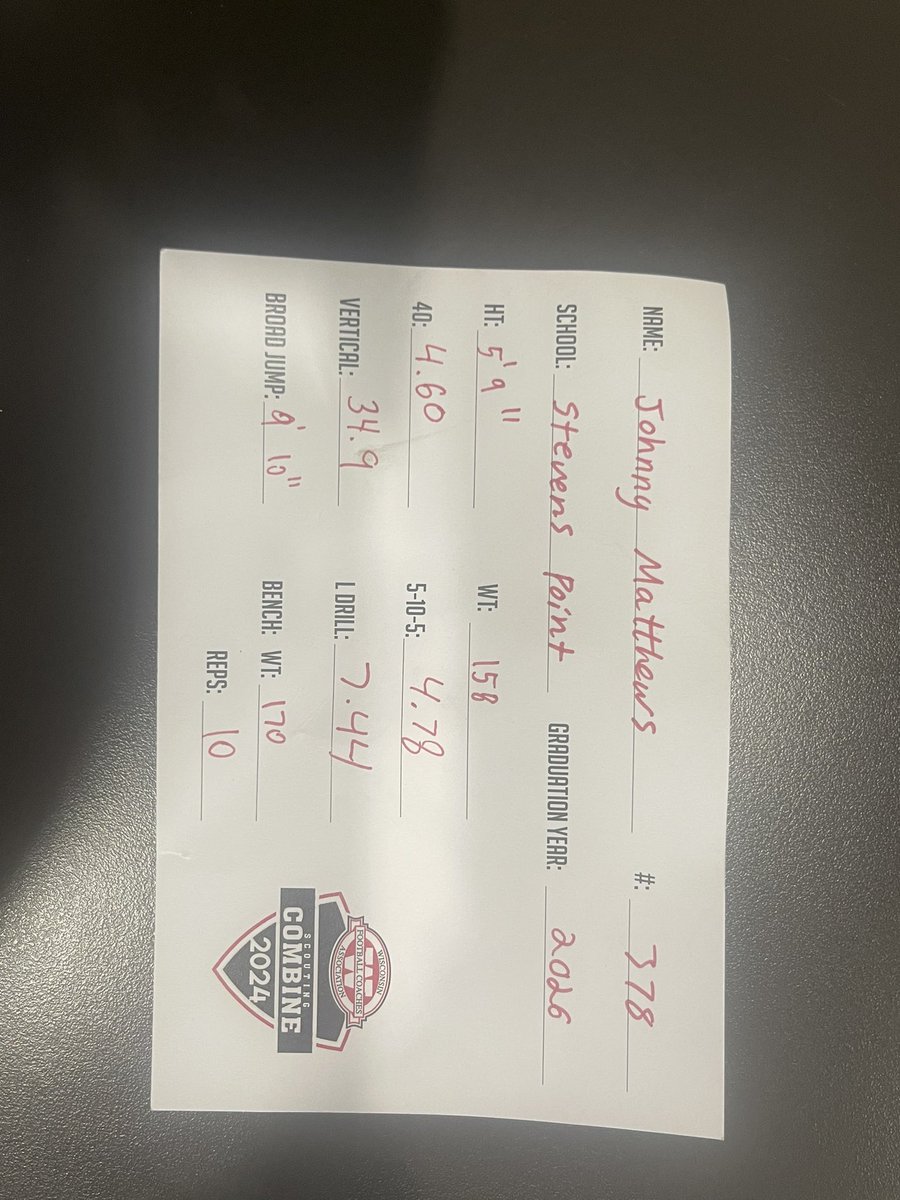 NAME: Johnny Matthews #: 378
SCHOOL: Stevens Point GRADUATION YEAR: 2026
HT: 5'9" WT: 158
40: 4.60 5-10-5: 4.78
VERTICAL: 34.9 L DRILL: 7.44
BROAD JUMP: 9' 10" BENCH: WT: 170
REPS: 10
WISCONSIN
FOOTBALL COACHES
ASSOCIATION
SCOUTING
COMBINE
2024